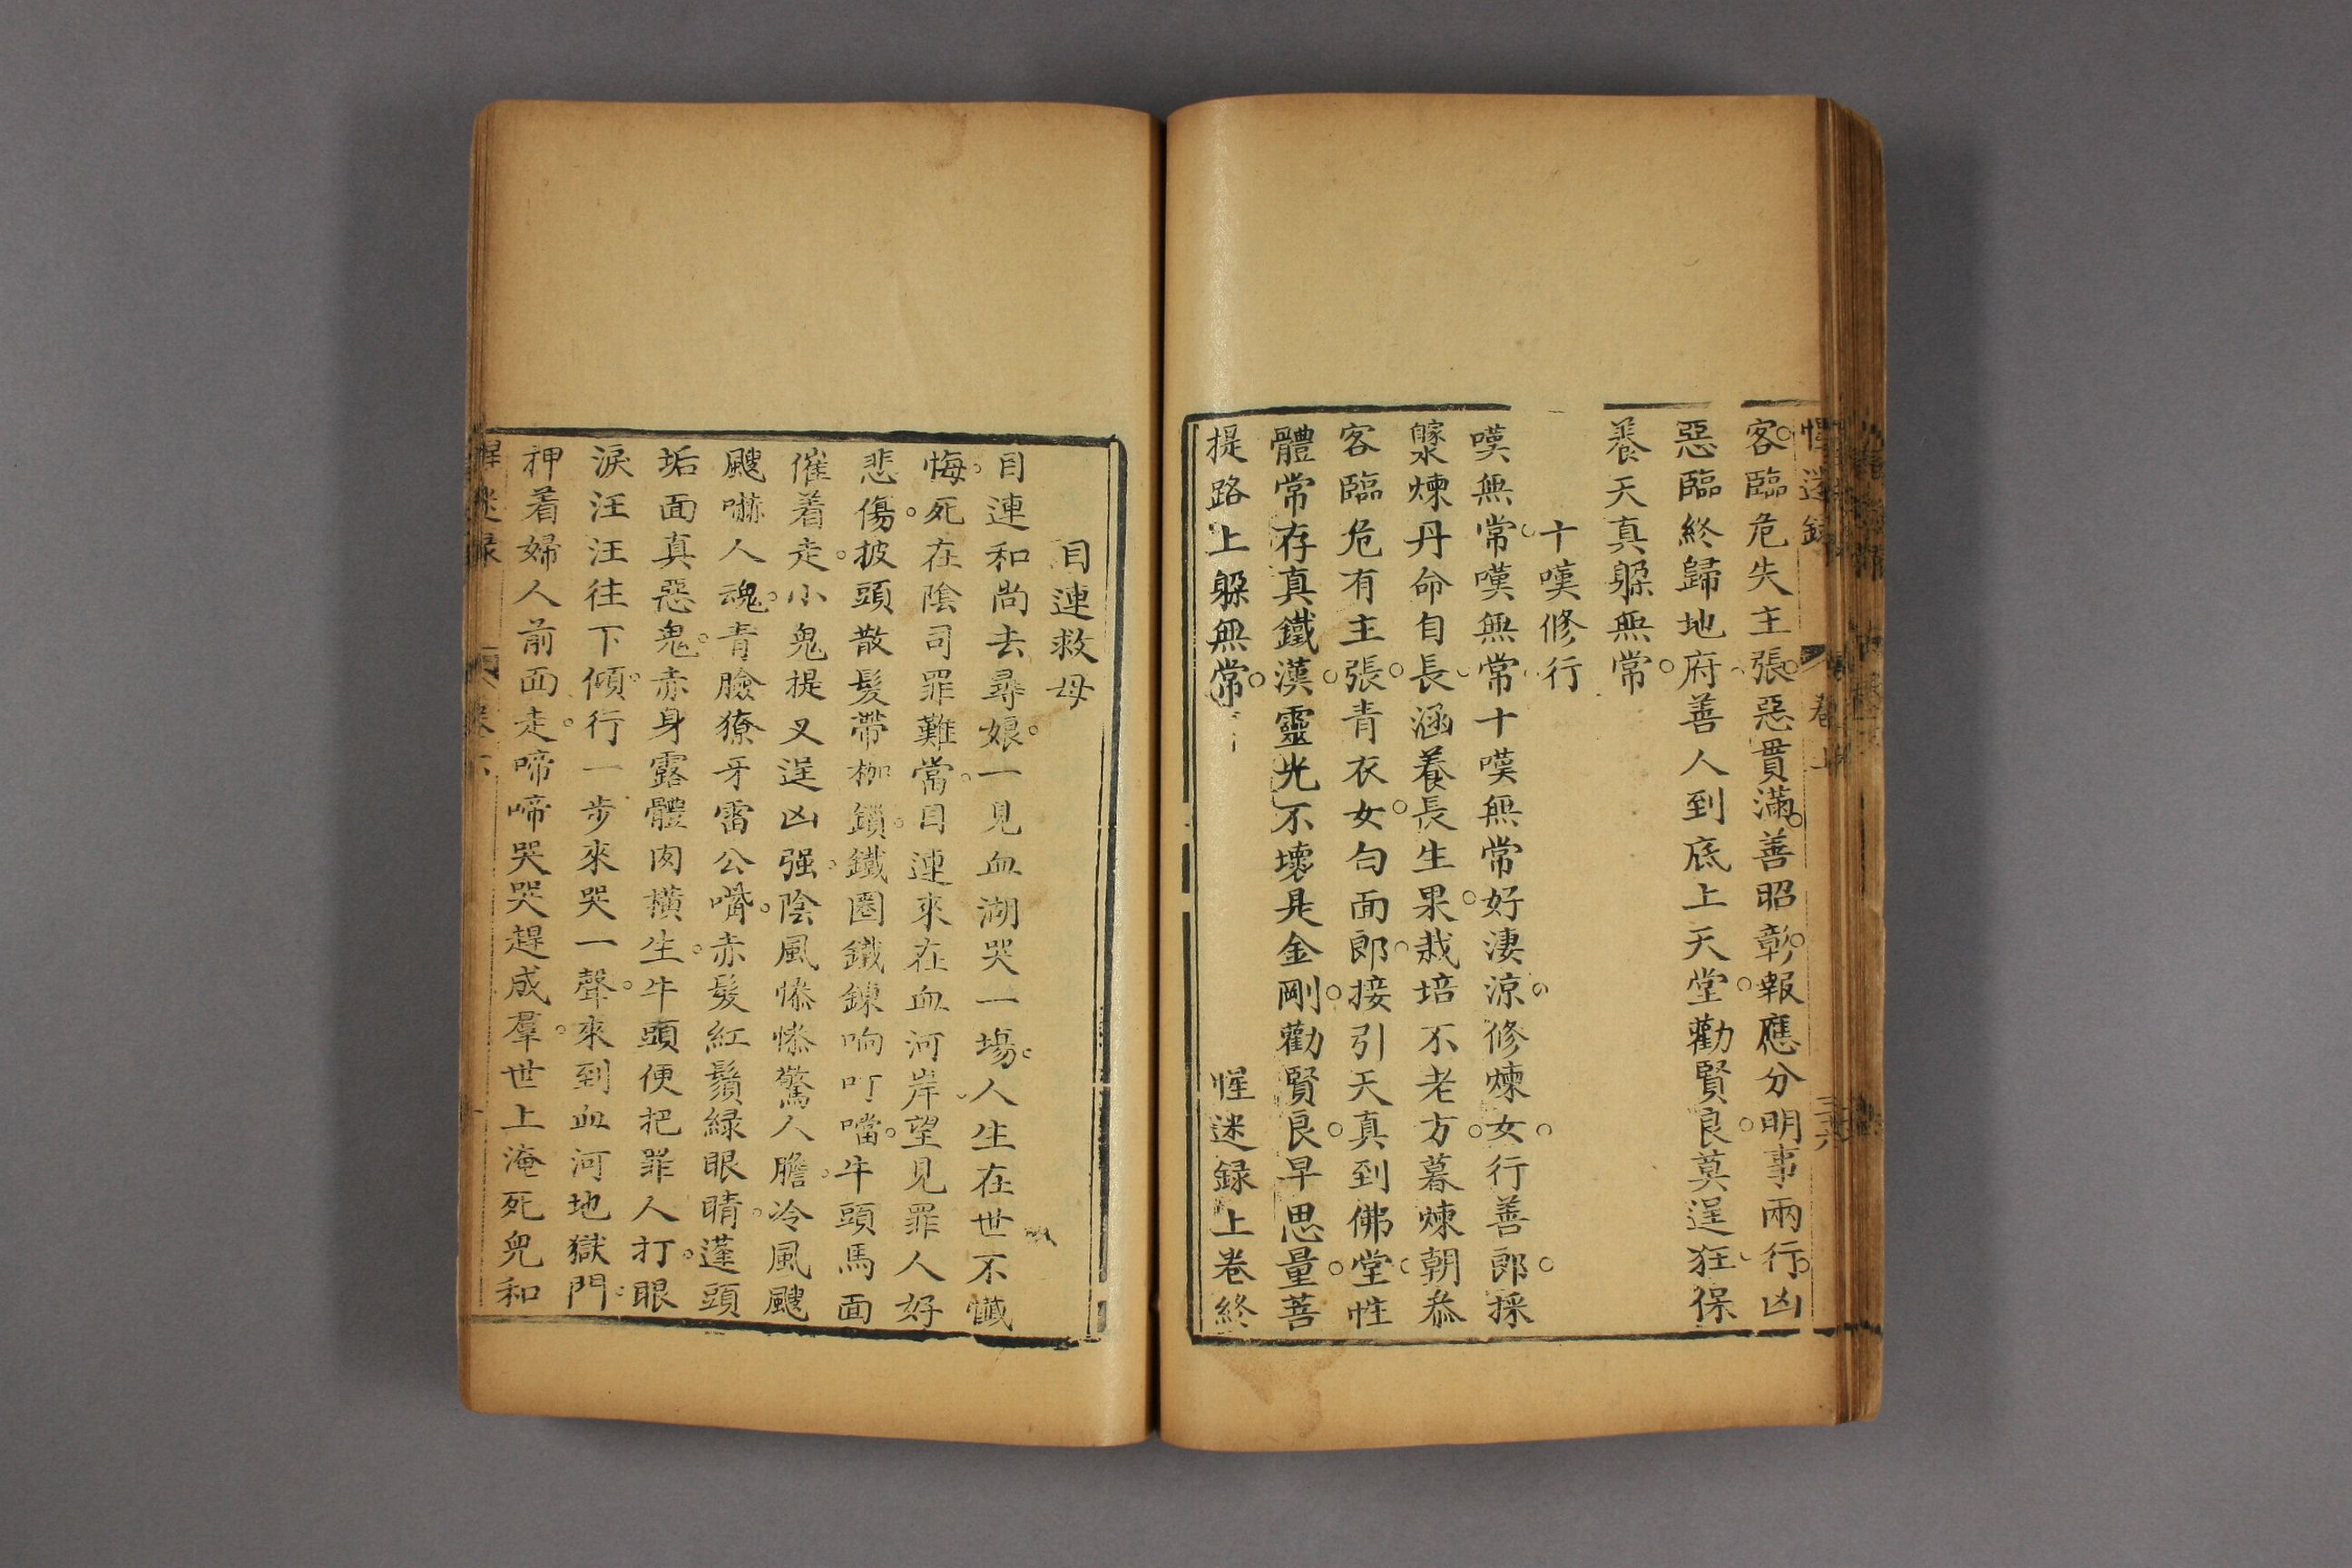 惺迷錄 卷上 三六
客臨危失主張惡貫滿善昭彰報應分明事兩行凶
惡臨終歸地府善人到底上天堂勸賢良莫逞狂保
養天真躲無常
十嘆修行
嘆無常嘆無常十嘆無常好淒涼修煉女行善郎採
煉丹命自長涵養長生果栽培不老方暮煉朝叅
客臨危有主張青衣女白面郎接引天真到佛堂性
體常存真鐵漢靈光不壞是金剛勸賢良早思量菩
提路上躲無常 惺迷録上卷終
目連救母
目連和尚去尋娘一見血湖哭一場人生在世不懺
悔死在陰司罪難當目連來在血河岸望見罪人好
悲傷披頭散髮帶枷鎖鐵圈鐵鍊响叮噹牛頭馬面
催着走小鬼提叉逞凶强陰風慘慘驚人膽冷風颼
颼嚇人魂青臉獠牙雷公嘴赤髮紅鬚緑眼睛蓬頭
垢面真惡鬼赤身露體肉橫生牛頭便把罪人打眼
淚汪汪往下傾行一步來哭一聲來到血河地獄門
押着婦人前面走啼啼哭哭趕成羣世上淹死鬼和
惺迷録